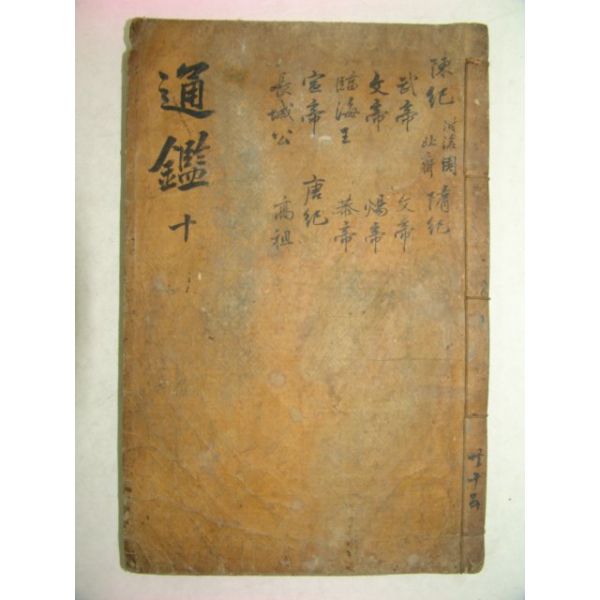 陳紀 附後周 北齊 隋紀
武帝 文帝
文帝 煬帝
臨海王 恭帝
宣帝 唐紀
長城公 高祖
通鑑 十